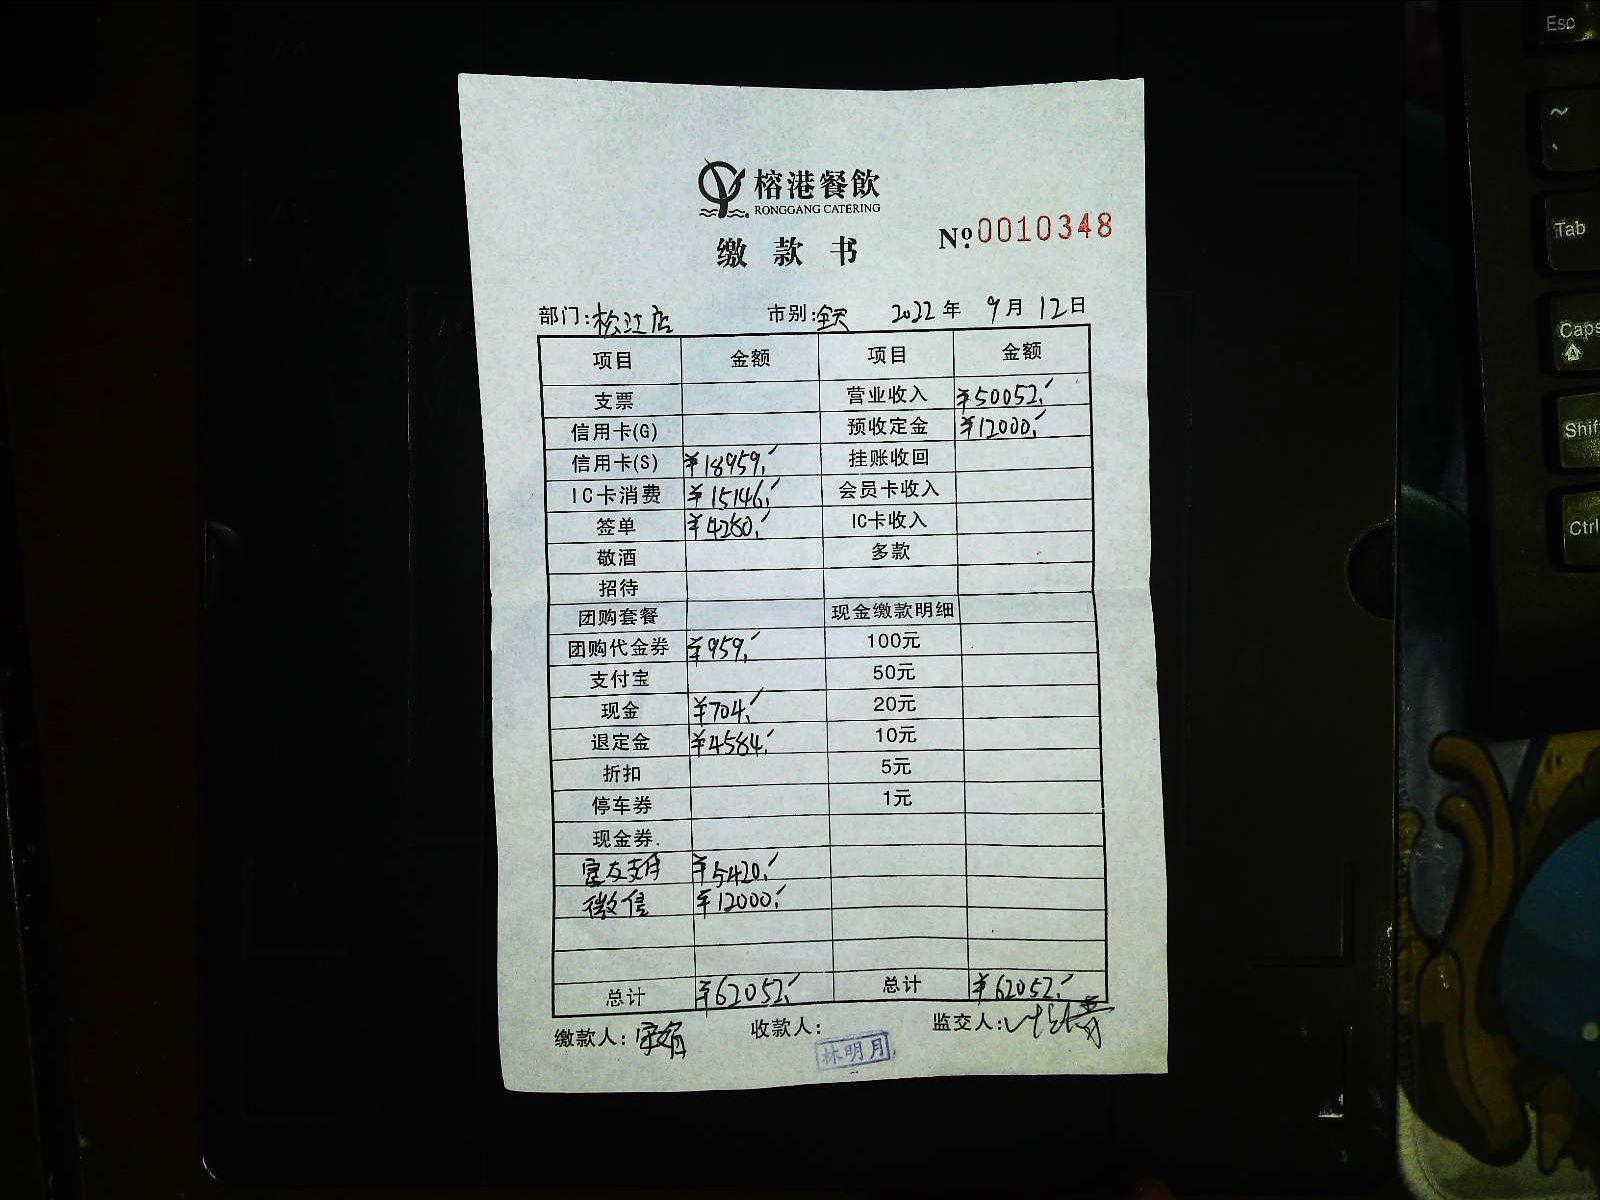 榕港餐飲
RONGGANG CATERING
缴款书
№ 0010348
部门:松江店 市别:全天 2022年 9月 12日
项目 金额 项目 金额
支票 营业收入 ¥50052.
信用卡(G) 预收定金 ¥12000.
信用卡(S) ¥18959. 挂账收回
IC卡消费 ¥15146. 会员卡收入
签单 ¥4280. IC卡收入
敬酒 多款
招待
团购套餐 现金缴款明细
团购代金券 ¥959. 100元
支付宝 50元
现金 ¥704. 20元
退定金 ¥4584. 10元
折扣 5元
停车券 1元
现金券.
支付 ¥5420.
微信 ¥12000.
总计 ¥62052. 总计 ¥62052.
缴款人: 收款人: 林明月 监交人:
Esc
~
Tab
Caps
Shif
Ctrl